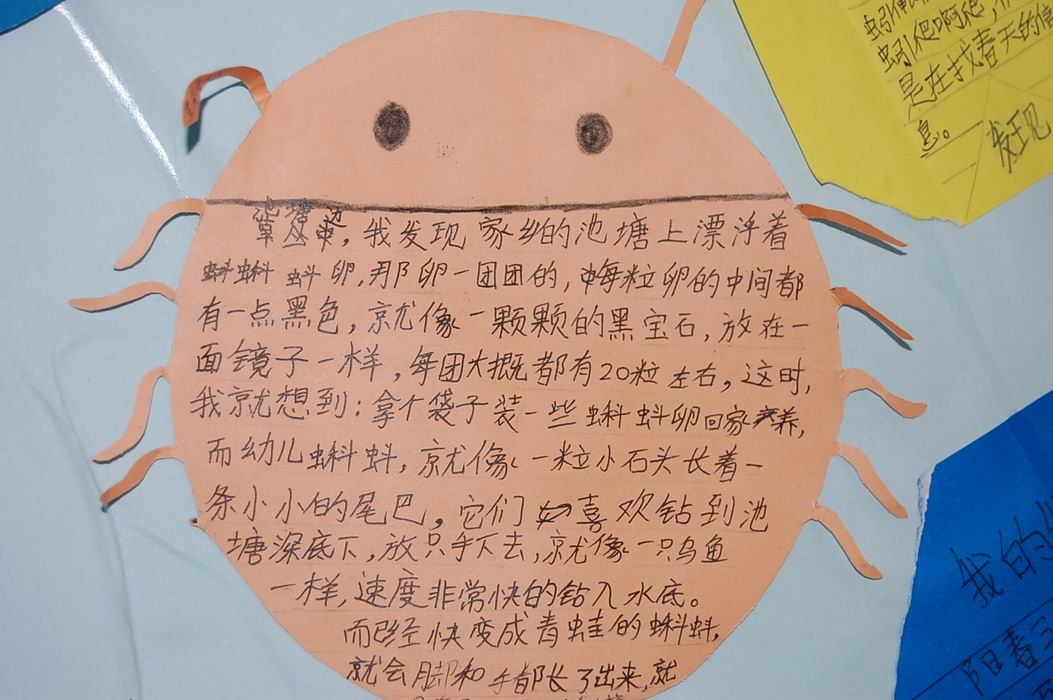 池塘边,我发现家乡的池塘上漂浮着
蝌蚪卵,那卵一团团的,每粒卵的中间都
有一点黑色,就像一颗颗的黑宝石,放在一
面镜子一样,每团大概都有20粒左右,这时,
我就想到:拿个袋子装一些蝌蚪卵回家养,
而幼儿蝌蚪,就像一粒小石头长着一
条小小的尾巴,它们喜欢钻到池
塘深底下,放只手下去,就像一只乌鱼
一样,速度非常快的钻入水底。
而已经快变成青蛙的蝌蚪,
就会脚和手都长了出来,就
蚓爬啊爬,
是在找春天的信
息。
发现
我的
阳春三